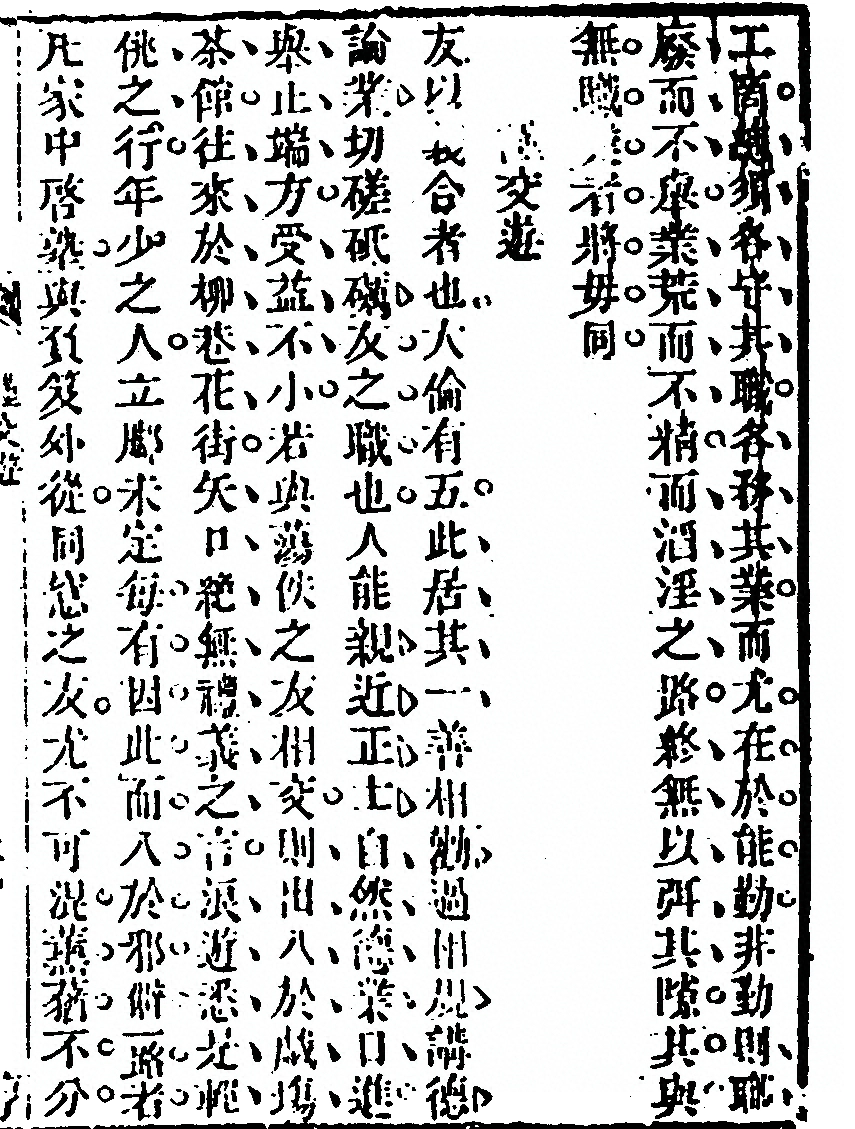 工商總須各守其職各務其業而尤在於能勤非勤則職
廢而不舉業荒而不精而酒淫之路終無以弭其隙其與
無職業者將毋同
交遊
友以義合者也人倫有五此居其一善相勸過相規講德
論業切磋砥礪友之職也人能親近正士自然德業日進
舉止端方受益不小若與蕩佚之友相交則出入於戲塲
茶館往來於柳巷花街矢口絶無禮義之言浪遊悉是輕
佻之行年少之人立脚未定每有因此而入於邪僻一路者
凡家中啓塾與負笈外從同窓之友尤不可混薰蕕不分